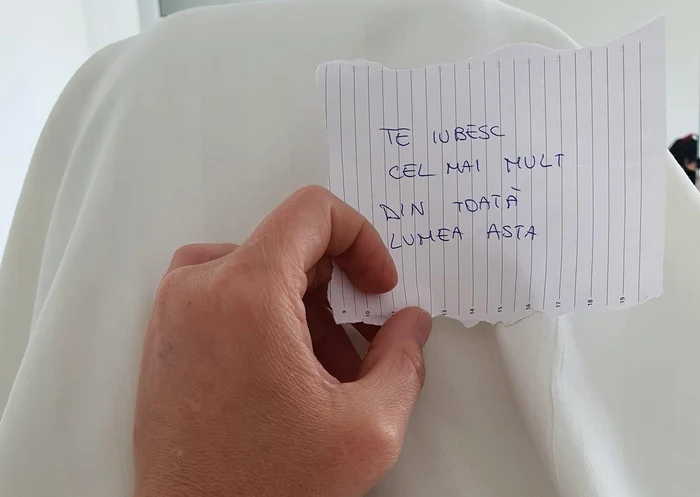 TE IUBESC
CEL MAI MULT
DIN TOATĂ
LUMEA ASTA
9 10 13 14 15 16 17 18 19